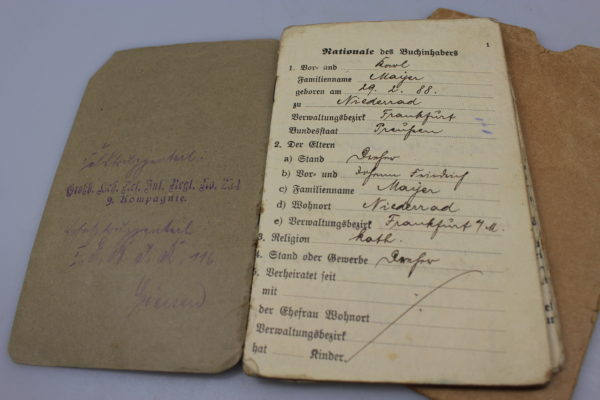 9. Kompagnie.
116
1
Nationale des Buchinhabers
1. Vor- und Karl
Familienname Mayer
geboren am 29. 2. 88.
zu Niederrad
Verwaltungsbezirk Frankfurt
Bundesstaat Preußen
2. Der Eltern
a) Stand Dreher
b) Vor- und Johann Friedrich
c) Familienname Mayer
d) Wohnort Niederrad
e) Verwaltungsbezirk Frankfurt a/M.
3. Religion kath.
4. Stand oder Gewerbe Dreher
5. Verheiratet seit
mit
der Ehefrau Wohnort
Verwaltungsbezirk
hat Kinder